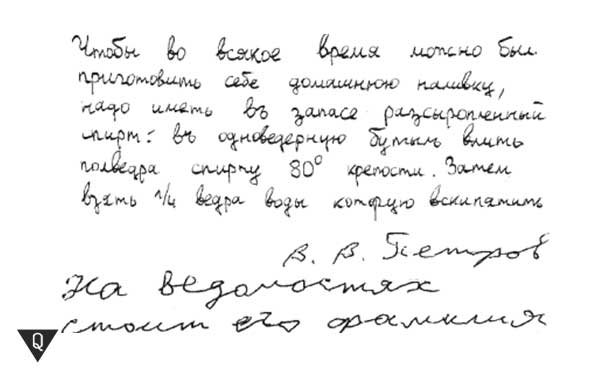 Чтобы во всякое время можно был
приготовить себе домашнюю наливку,
надо иметь въ запасе разсыропленный
спирт: въ одноведерную бутыль влить
полведра спирту 80° крепости. Затем
взять 1/4 ведра воды которую вскипятить
В. В. Петров
На ведомостях
стоит его фамилия
Q